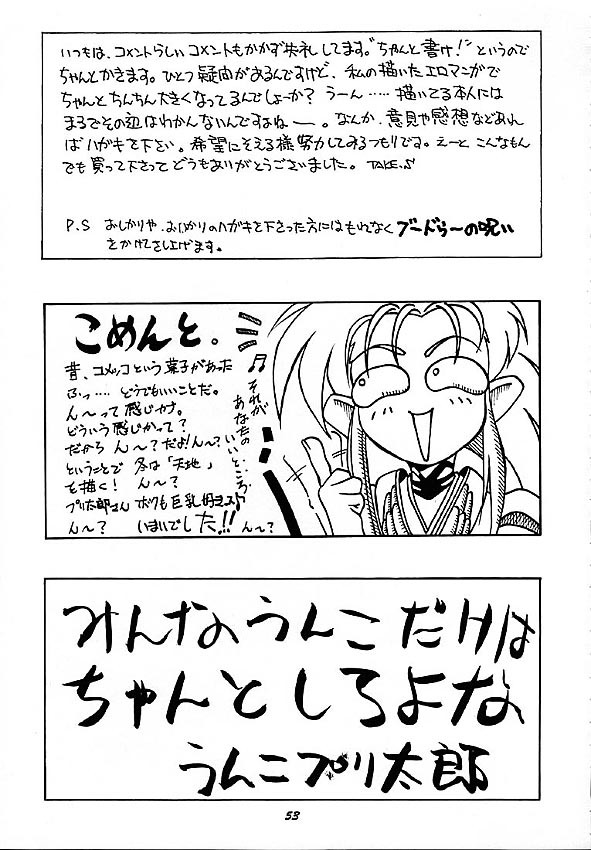 いつもは、コメントらしいコメントもかかず失礼してます。“ちゃんと書け！”というので
ちゃんとかきます。ひとつ疑問があるんですけど、私の描いたエロマンガで
ちゃんとちんちん大きくなってるんでしょーか？うーん……描いてる本人には
まるでその辺はわかんないんですよねー。なんか、意見や感想などあれ
ばハガキを下さい。希望にそえる様努力してみるつもりです。えーと こんなもん
でも買って下さってどうもありがとうございました。 TAKE.S
P.S おしかりや、おいかりのハガキを下さった方にはもれなく ブードゥーの呪い
をかけてさし上げます。
こめんと。
昔、コメッコという菓子があった
ふっ……どうでもいいことだ。
ん～って感じかな。
どういう感じかって？
だから ん～？だよ！ん～？
ということで 冬は「天地」
を描く！ ん～？
プリ太郎さん ボクも巨乳好きっス
ん～？ いまいでした!! ん～？
♫それが
あなたの
いいところ♪
みんなうんこだけは
ちゃんとしろよな
うんこプリ太郎
53